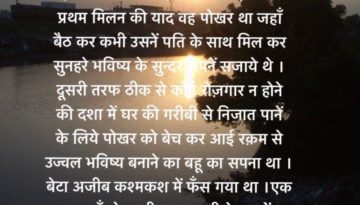 प्रथम मिलन की याद वह पोखर था जहाँ
बैठ कर कभी उसनें पति के साथ मिल कर
सुनहरे भविष्य के सुन्दर सपनें सजाये थे ।
दूसरी तरफ ठीक से कोई रोज़गार न होने
की दशा में घर की गरीबी से निज़ात पाने
के लिये पोखर को बेच कर आई रक़म से
उज्वल भविष्य बनाने का बहू का सपना था ।
बेटा अजीब कश्मकश में फँस गया था ।एक